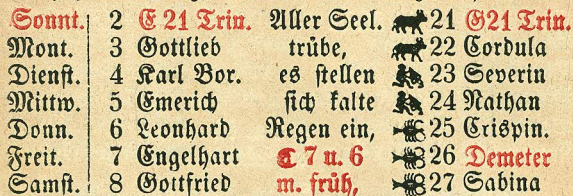 Sonnt. 2 E 21 Trin. Aller Seel. 21 G21 Trin.
Mont. 3 Gottlieb trübe, 22 Cordula
Dienst. 4 Karl Bor. es stellen 23 Severin
Mittw. 5 Emerich sich kalte 24 Nathan
Donn. 6 Leonhard Regen ein, 25 Crispin.
Freit. 7 Engelhart ☾ 7 u. 6 26 Demeter
Samst. 8 Gottfried m. früh, 27 Sabina